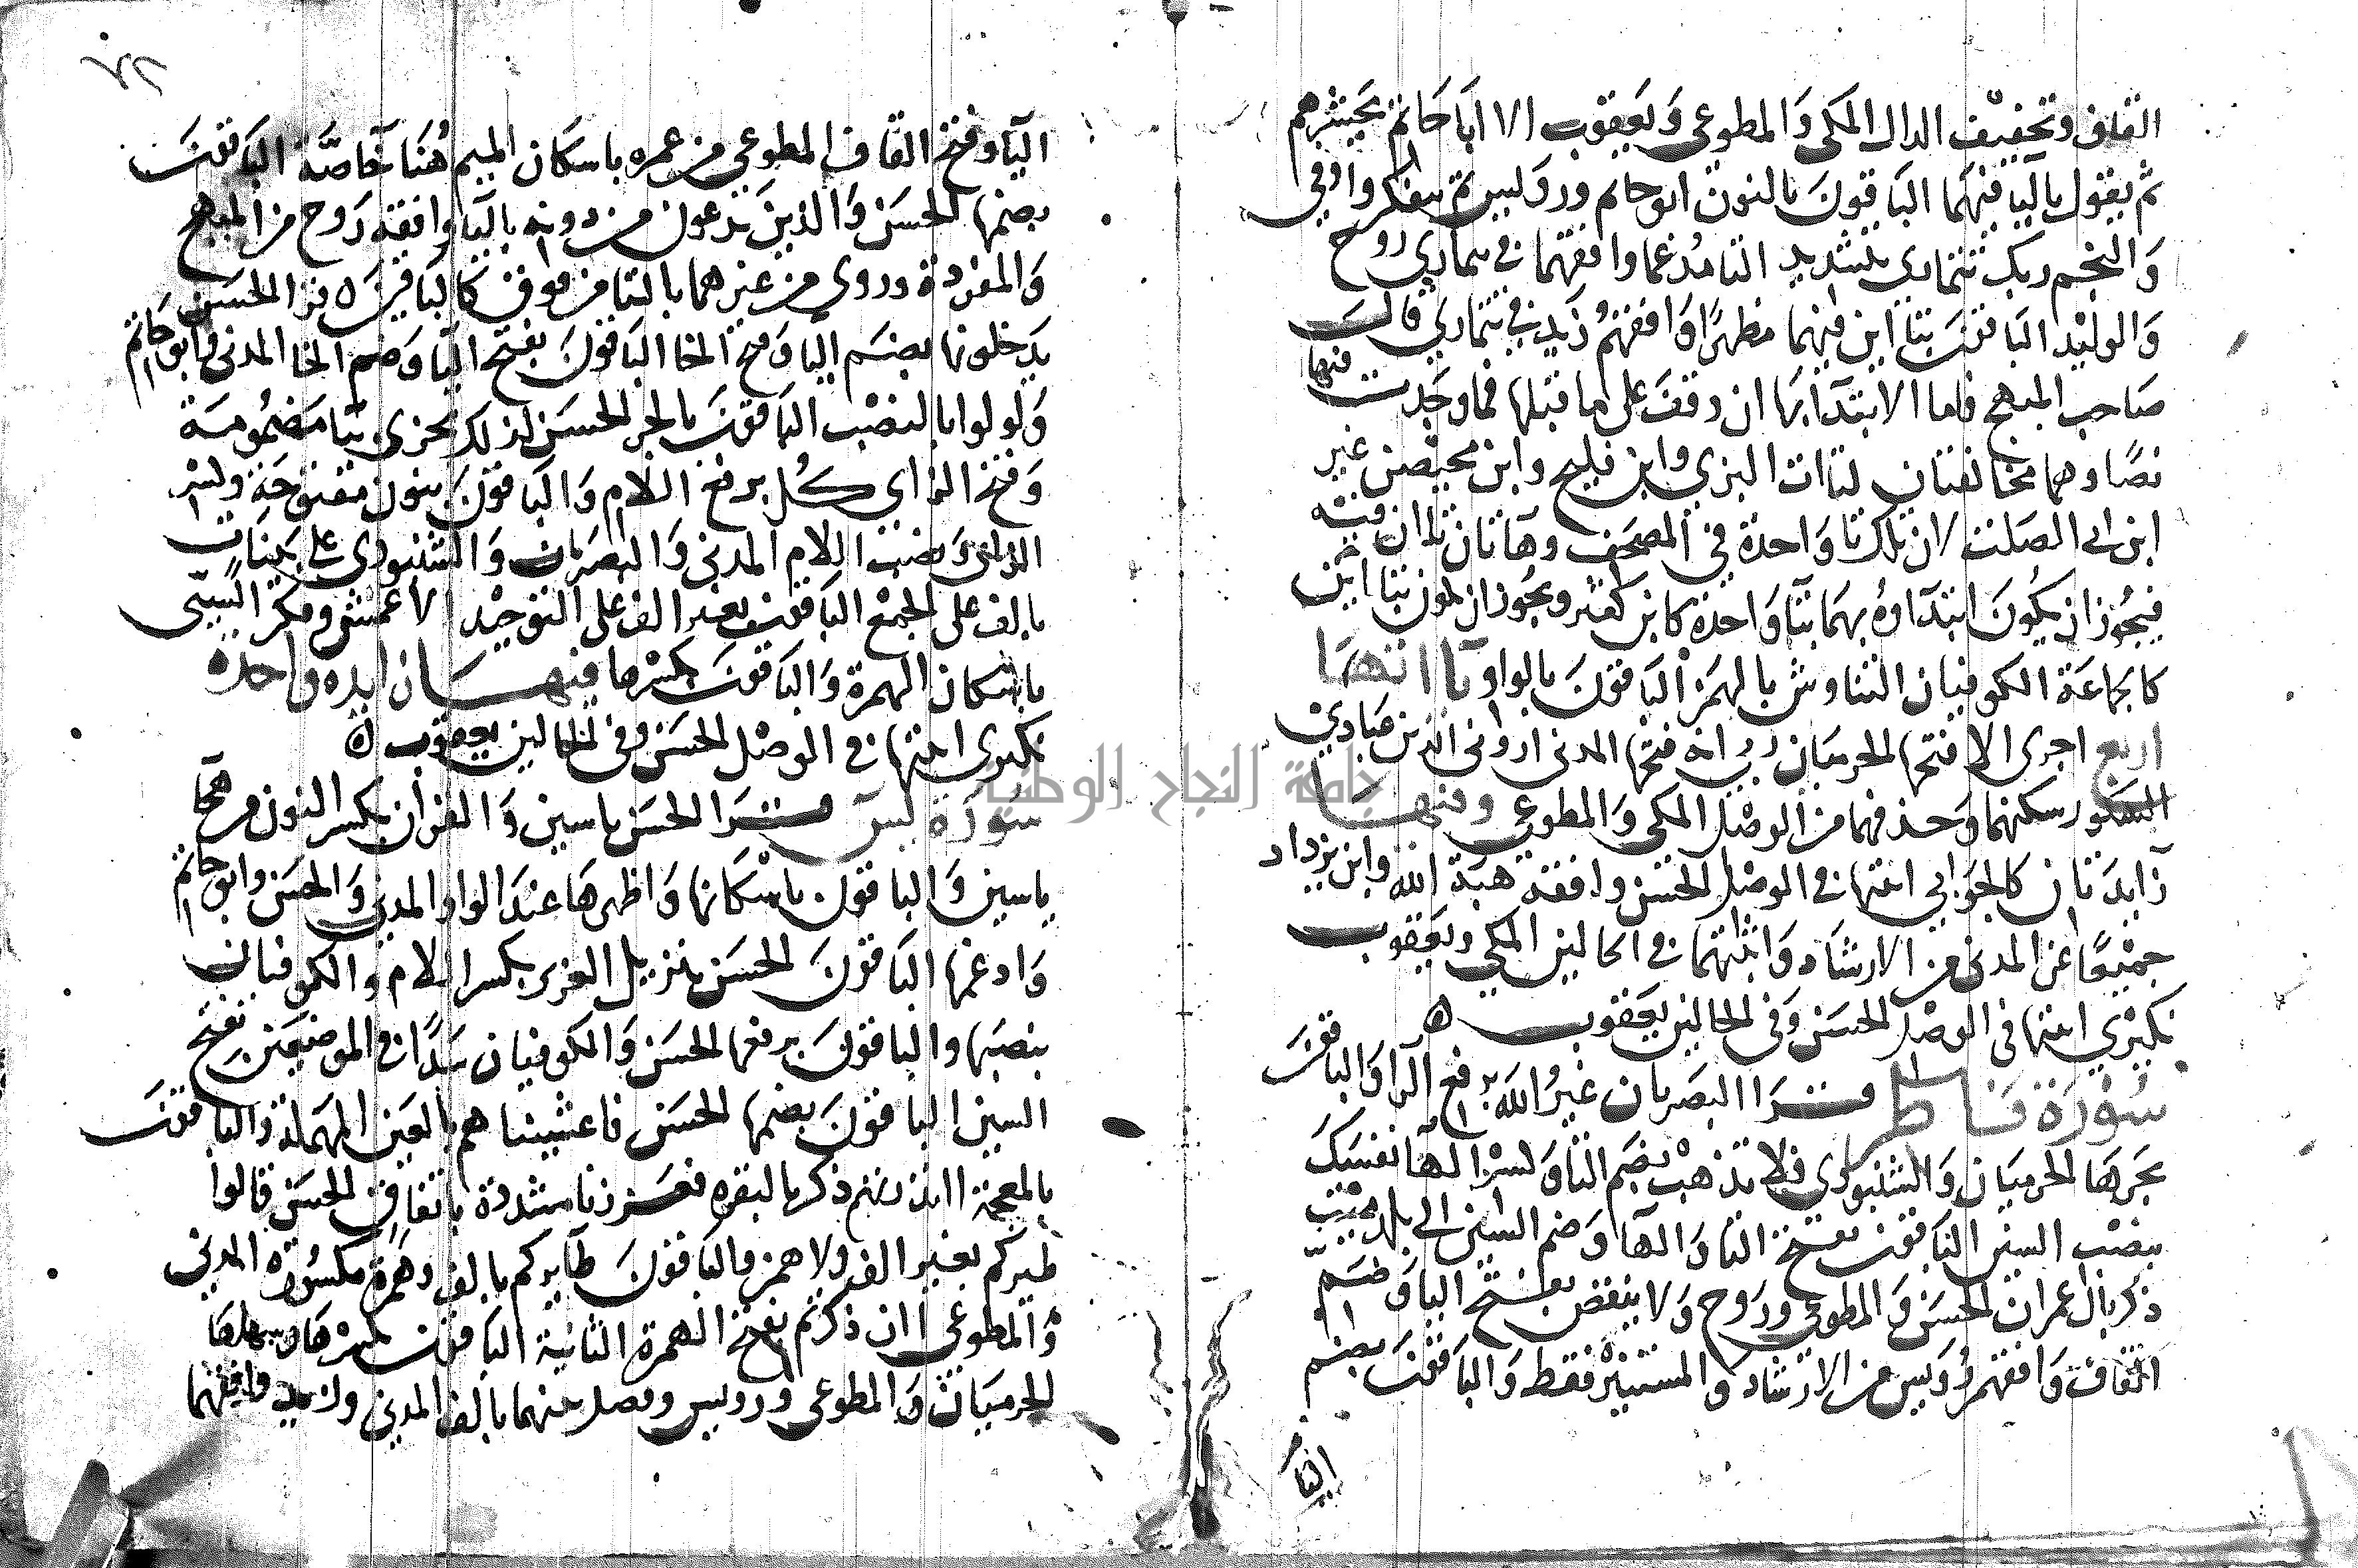 القاف وتخفيف الدال المكي والمطوعي ويعقوب الا ابا حاتم يحشرهم
ثم يقول باليا فيهما الباقون بالنون ابو حاتم ورويس ثم تتفكروا وفي
والنجم ربك تتمارى بتشديد التا مدغما وافقهما في تتمارى روح
والوليد الباقون بتاين فيهما مظهرا وافقهم زيد في تتمارى قال
صاحب المبهج فاما الابتدا بها ان وقف على ما قبلها فما وجدت فيهما
نصا وهما مخالفتان لتاات البزي وابن فليح وابن محيصن غير
ابن ابي الصلت لان تلك تا واحدة في المصحف وهاتان تاان فيه
فيجوز ان يكون ابتداوه بهما بتا واحدة كابن كثير ويجوز ان يكون بتاين
كالجماعة الكوفيان التناوش بالهمز الباقون بالواو يااتها
اربع اجرى الا فتحها الحرميان ربي انه فتحها المدني اروني الذين عبادي
الشكور سكنهما وحذفهما من الوصل المكي والمطوعي وفيها
زايدتان كالجوابي اثبتها في الوصل الحسن وافقه هبة الله وابن يزداد
جميعا عن المدني من الارشاد واثبتهما في الحالين المكي ويعقوب
نكيري اثبتها في الوصل الحسن وفي الحالين يعقوب ه
سورة فاطر قرا البصريان غير الله برفع الرا والباقون
بجرها الحرميان والشنبوذي فلا تذهب بضم التا وكسر الها نفسك
بنصب السين الباقون بفتح التا والها وضم السين الى بلد ميت
ذكر بال عمران الحسن والمطوعي وروح ولا ينقص بفتح اليا وضم
القاف وافقهم رويس من الارشاد والمستنير فقط والباقون بضم
اليا
اليا وفتح القاف المطوعي من عمره باسكان الميم هنا خاصة الباقون
بضمها الحسن والذين تدعون من دونه باليا وافقه روح من المبهج
والمفردة وروى من غيرهما بالتا من فوق كالباقين ه قرا الحسن
يدخلونها بضم اليا وفتح الخا الباقون بفتح اليا وضم الخا المدني وابو حاتم
ولولوا بالنصب الباقون بالجر الحسن كذلك يجزى بيا مضمومة
وفتح الزاي كل برفع اللام والباقون بنون مفتوحة وكسر
الزاي ونصب اللام المدني والبصريان والشنبوذي على بينات
بالف على الجمع الباقون بغير الف على التوحيد الاعمش ومكر السيى
باسكان الهمزة والباقون بكسرها فيها ياان زايده واحدة
نكيري اثبتها في الوصل الحسن وفي الحالين يعقوب ه
سورة يس قرا الحسن ياسين والقران بكسر النون من هجا
ياسين والباقون باسكانها واظهرها عند الواو المدني والحسن وابو حاتم
وادغمها الباقون الحسن تنزيل العزيز بكسر اللام والكوفيان
بنصبها والباقون برفعها الحسن والكوفيان سدا في الموضعين بفتح
السين الباقون بضمها الحسن فاعشيناهم بالعين المهملة والباقون
بالمعجمة اانذرتهم ذكر بالبقره فعززنا مشددة باتفاق الحسن قالوا
طيركم بغير الف ولا همز والباقون طايركم بالف وهمزة مكسوره المدني
والمطوعي اان ذكرتم بفتح الهمزة الثانية الباقون بكسرها وسهلها
الحرميان والمطوعي ورويس وفصل بينهما بالف المدني وزيد وافقهما
جامعة النجاح الوطنية